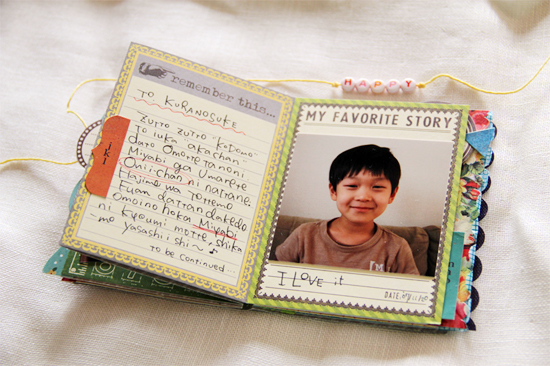 remember this...
TO KURANOSUKE
ZUTTO ZUTTO KODOMO
TO iuka akachan
dato Omotte tanoni
Miyabi ga Umarete
Onii-chan ni natane.
Hajime wa Totemo
Fuan dattandakedo
Omoino hoka Miyabi
ni Kyoumi motte, shika
mo yasashii shi~♪
TO be continued...
iki
HAPPY
MY FAVORITE STORY
I LOVE it
DATE: